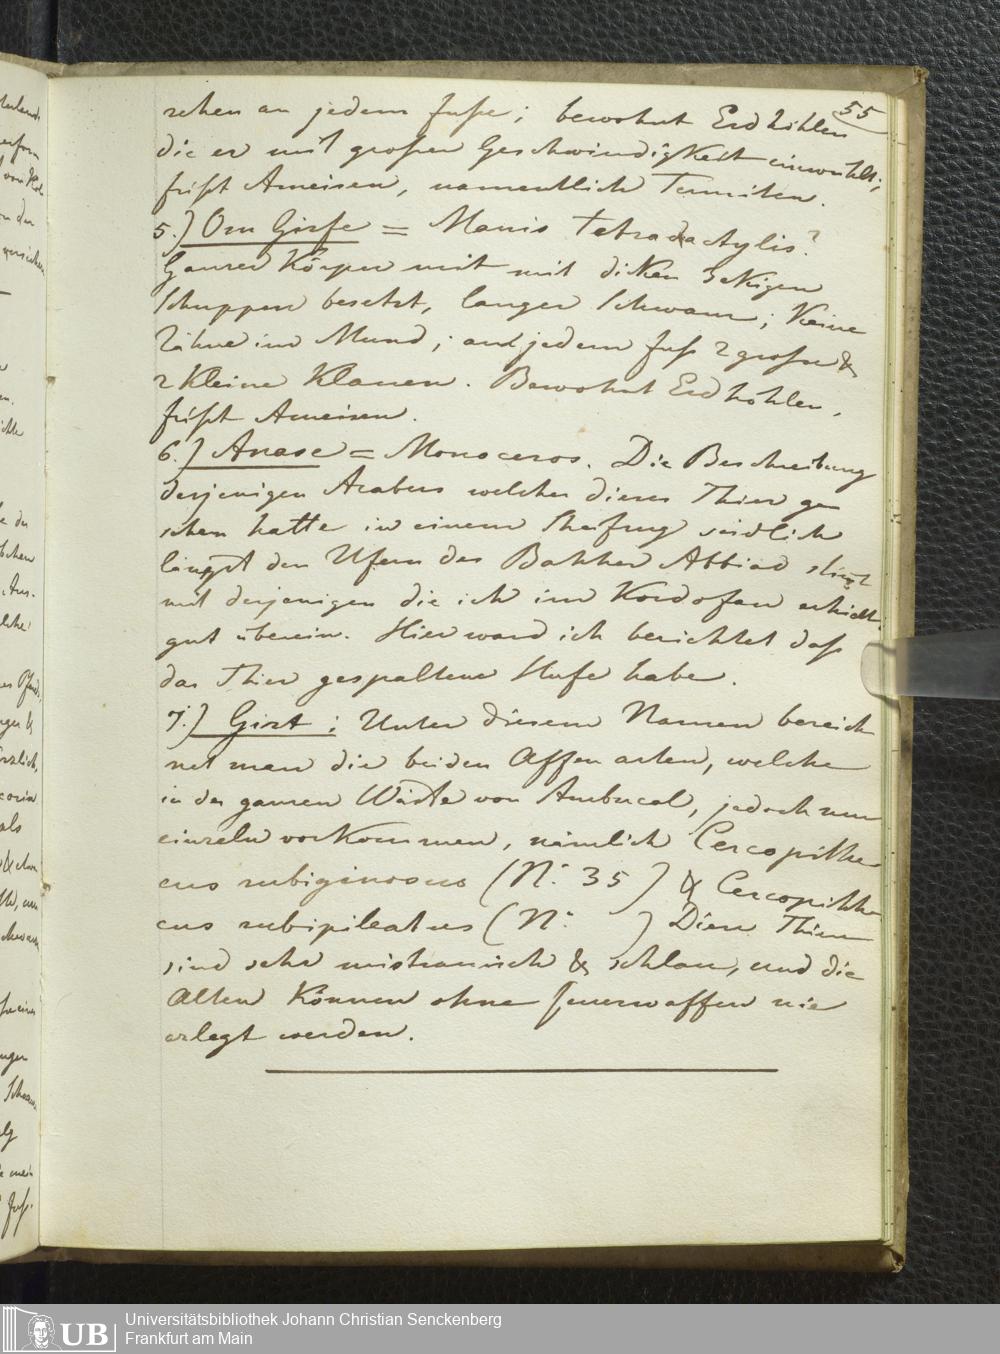 55
zehen an jedem Fuße; bewohnt Erdhöhlen
die er mit großer Geschwindigkeit einwühlt;
frißt Ameisen, namentlich Termiten.
5.) Om Girfe = Manis tetradactylis?
Ganzer Körper mit mit diken 3ekigen
Schuppen besetzt, langer Schwanz; Keine
Zähne im Mund; an jedem Fuß 2 große &
2 Kleine Klauen. Bewohnt Erdhöhlen,
frißt Ameisen.
6.) Anase = Monoceros. Die Beschreibung
desjenigen Arabers welcher dieses Thier ge
sehen hatte in einem Streifzug südlich
längst den Ufern des Bahher Abbiad stimt
mit derjenigen die ich im Kordofan erhielt
gut überein. Hier ward ich berichtet daß
das Thier gespaltene Hufe habe.
7.) Girt: Unter diesem Namen bezeich
net man die beiden Affenarten, welche
in der ganzen Wüste von Ambucol, jedoch nur
einzeln vorkommen, nämlich Cercopithe
cus rubiginosus (N: 35) & Cercopithe
cus rubipileatus (N: ) Diese Thiere
sind sehr mistrauisch & schlau, und die
Alten Können ohne Feuerwaffen nie
erlegt werden.
Universitätsbibliothek Johann Christian Senckenberg
Frankfurt am Main
UB